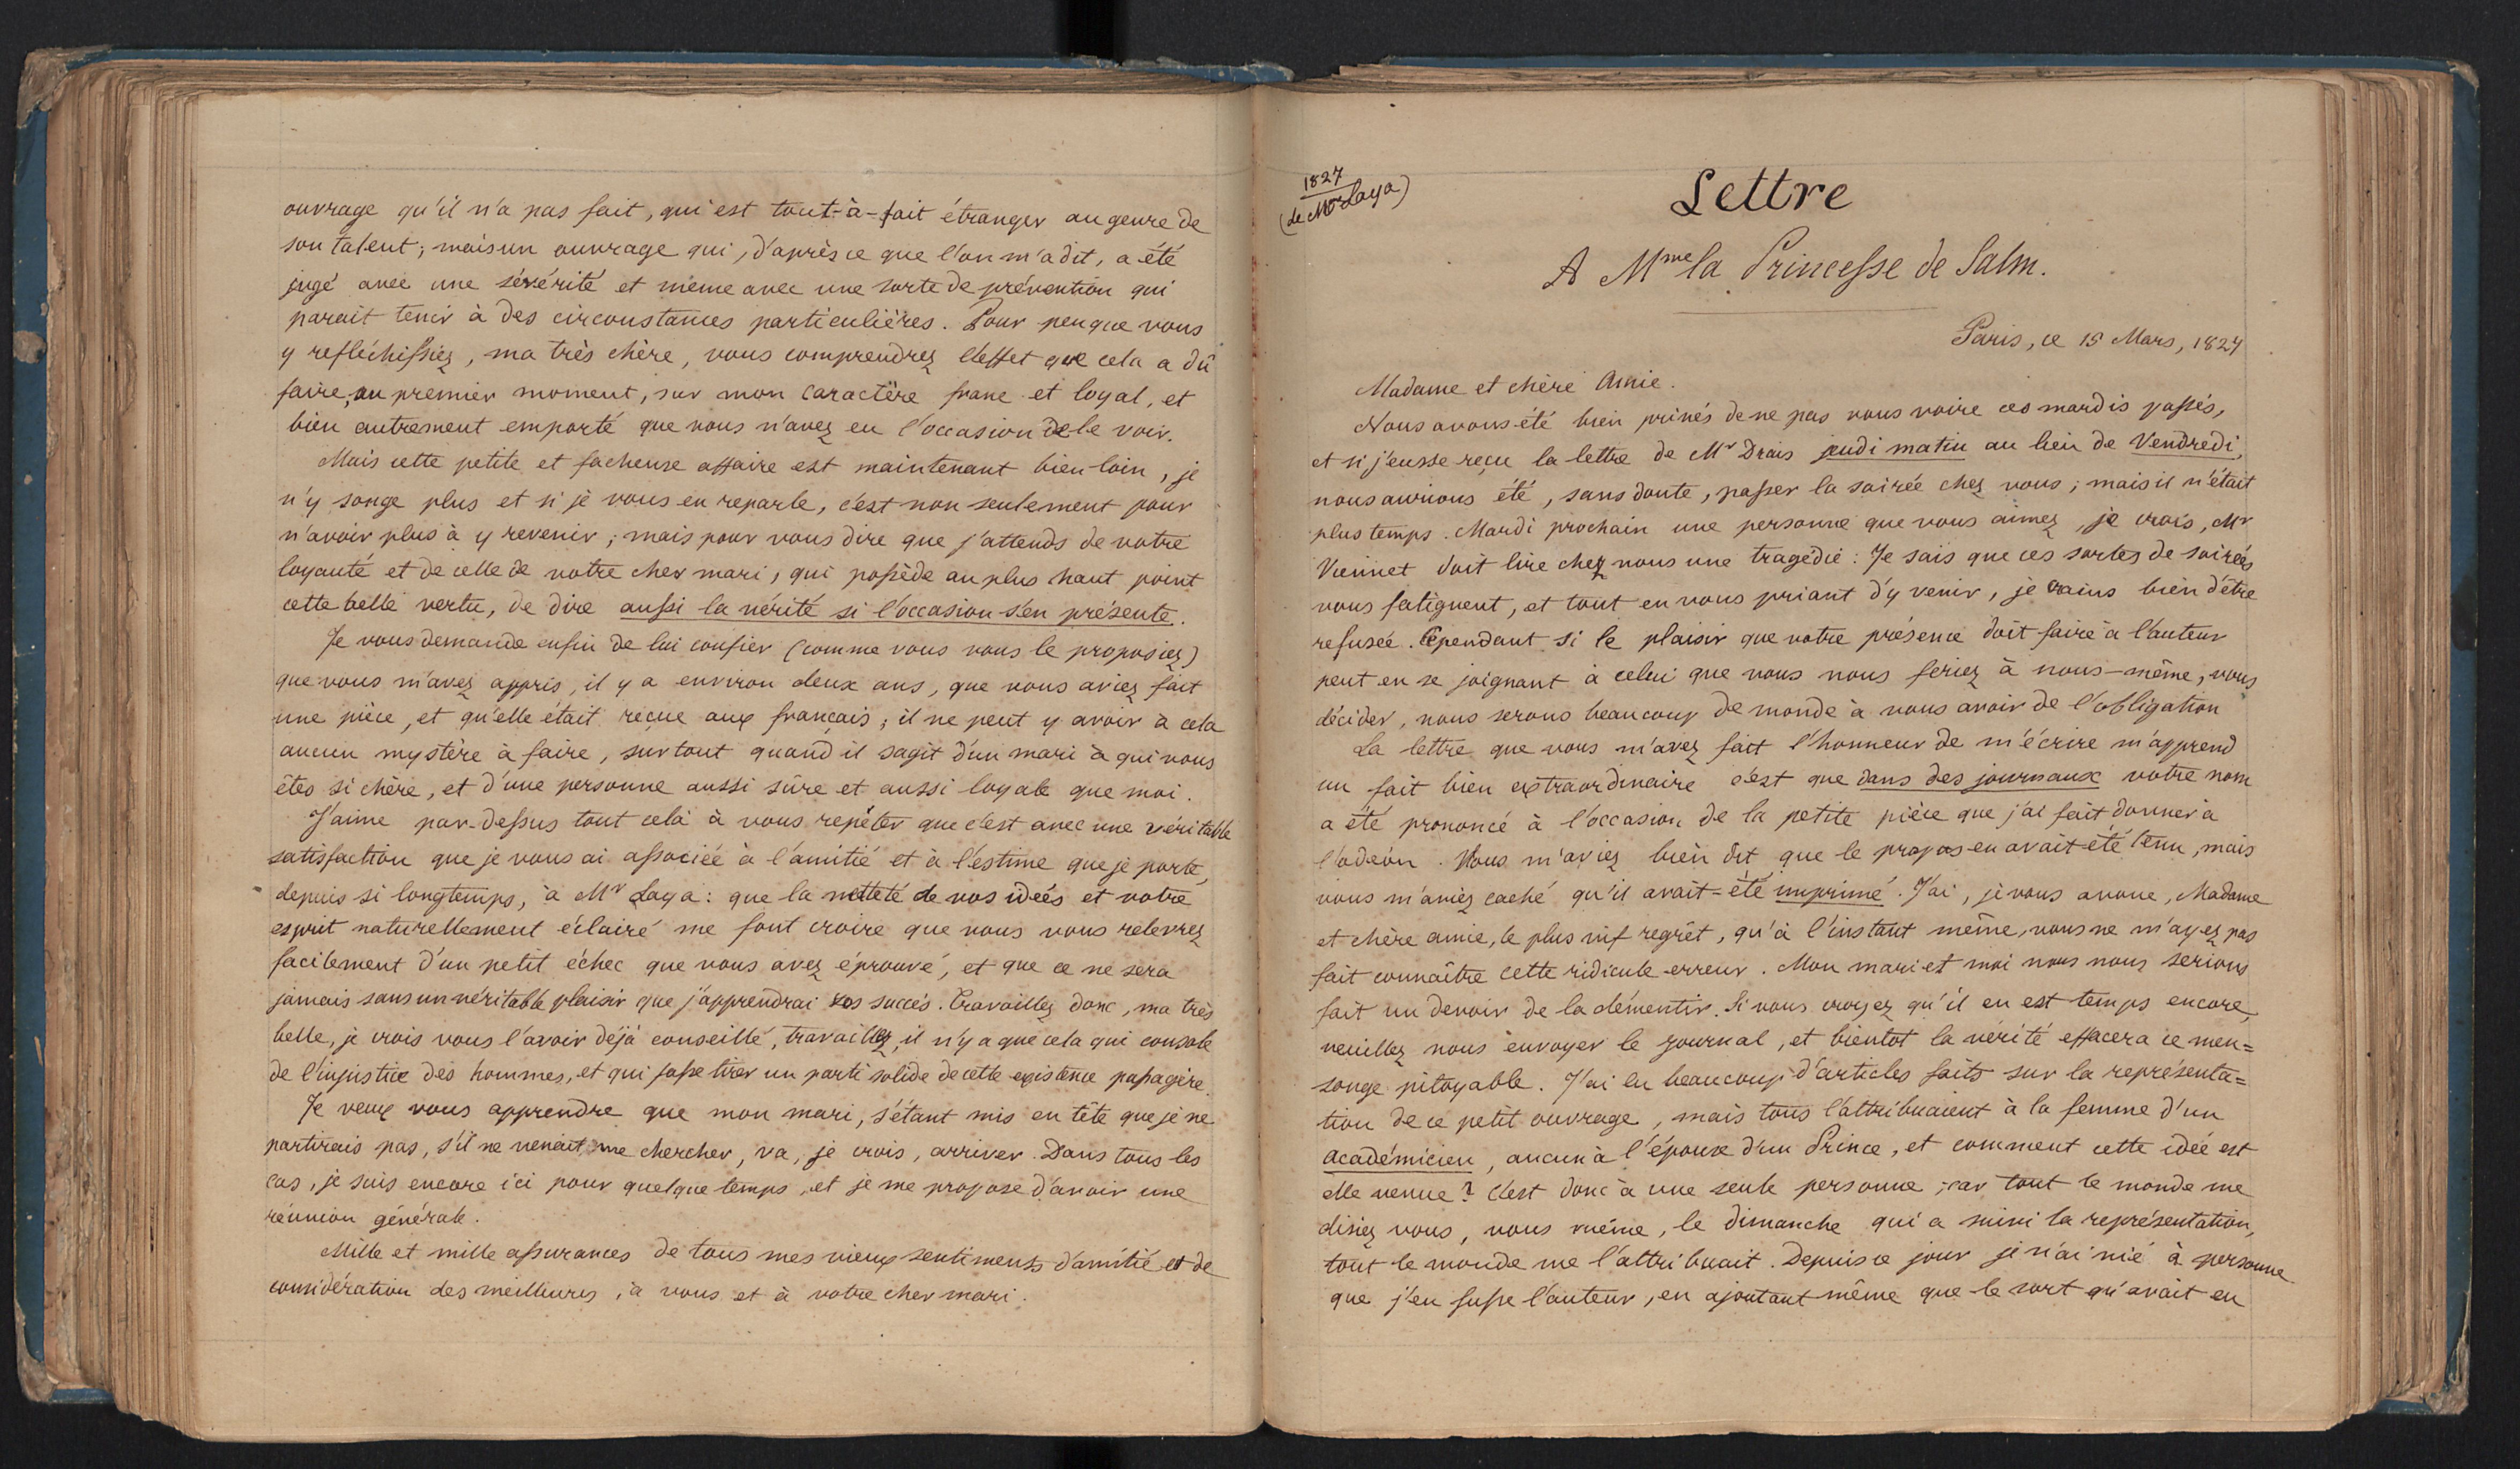 ouvrage qu'il n'a pas fait, qui est tout-à-fait étranger au genre de
son talent; mais un ouvrage qui, d'après ce que l'on m'a dit, a été
jugé avec une sévérité et même avec une sorte de prévention qui
parait tenir à des circonstances particulières. Pour peu que vous
y reflechissiez, ma très chère, vous comprendrez l'effet que cela a dû
faire, au premier moment, sur mon caractère franc et loyal, et
bien autrement emporté que vous n'avez eu l'occasion de le voir.
Mais cette petite et facheuse affaire est maintenant bien loin, je
n'y songe plus et si je vous en reparle, c'est non seulement pour
n'avoir plus à y revenir; mais pour vous dire que j'attends de votre
loyauté et de celle de votre cher mari, qui possède au plus haut point
cette belle vertu, de dire aussi la vérité si l'occasion s'en présente.
Je vous demande enfin de lui confier (comme vous vous le proposiez)
que vous m'avez appris, il y a environ deux ans, que vous aviez fait
une pièce, et qu'elle était reçue aux français; il ne peut y avoir à cela
aucun mystère à faire, surtout quand il sagit d'un mari à qui vous
êtes si chère, et d'une personne aussi sûre et aussi loyale que moi.
J'aime par-dessus tout cela à vous repéter que c'est avec une véritable
satisfaction que je vous ai associée à l'amitié et à l'estime que je porte,
depuis si longtemps, à Mr Laya: que la netteté de vos idées et votre
esprit naturellement éclairé me font croire que vous vous releverez
facilement d'un petit échec que vous avez éprouvé, et que ce ne sera
jamais sans un véritable plaisir que j'apprendrai vos succès. Travaillez donc, ma très
belle, je crois vous l'avoir déjà conseillé, travaillez, il n'y a que cela qui console
de l'injustice des hommes, et qui fasse tirer un parti solide de cette existence passagère.
Je veux vous apprendre que mon mari, s'étant mis en tête que je ne
partirais pas, s'il ne venait me chercher, va, je crois, arriver. Dans tous les
cas, je suis encore ici pour quelque temps, et je me propose d'avoir une
réunion générale.
Mille et mille assurances de tous mes vieux sentiments d'amitié et de
considération des meilleures, à vous et à votre cher mari.
1827
(de Mme Laya)
Lettre
A Mme la Princesse de Salm.
Paris, ce 15 Mars, 1827
Madame et chère Amie.
Nous avons été bien peinés de ne pas vous voire ces mardis passés,
et si j'eusse reçu la lettre de Mr Drais jeudi matin au lieu de Vendredi,
nous aurions été, sans doute, passer la soirée chez vous; mais il n'était
plus temps. Mardi prochain une personne que vous aimez, je crois, Mr
Viennet doit lire chez nous une tragédie: Je sais que ces sortes de soirées
vous fatiguent, et tout en vous priant d'y venir, je crains bien d'être
refusée. Cependant si le plaisir que votre présence doit faire à l'auteur
peut en se joignant à celui que vous nous feriez à nous-même, vous
décider, nous serons beaucoup de monde à vous avoir de l'obligation
La lettre que vous m'avez fait l'honneur de m'écrire m'apprend
un fait bien extraordinaire c'est que dans des journaux votre nom
a été prononcé à l'occasion de la petite pièce que j'ai fait donner à
l'odéon. Vous m'aviez bien dit que le propos en avait été tenu, mais
vous m'aviez caché qu'il avait-été imprimé. J'ai, je vous avoue, Madame
et chère amie, le plus vif regrêt, qu'à l'instant même, vous ne m'ayez pas
fait connaître cette ridicule erreur. Mon mari et moi nous nous serions
fait un devoir de la démentir. Si vous croyez qu'il en est temps encore,
veuillez nous envoyer le journal, et bientôt la vérité effacera ce men=
songe pitoyable. J'ai lu beaucoup d'articles faits sur la représenta=
tion de ce petit ouvrage, mais tous l'attribuaient à la femme d'un
académicien, aucun à l'épouse d'un Prince, et comment cette idée est
elle venue? C'est donc à une seule personne; car tout le monde me
disiez vous, vous même, le dimanche qui a suivi la représentation,
tout le monde me l'attribuait. Depuis ce jour je n'ai nié à personne
que j'en fusse l'auteur, en ajoutant même que le sort qu'avait eu